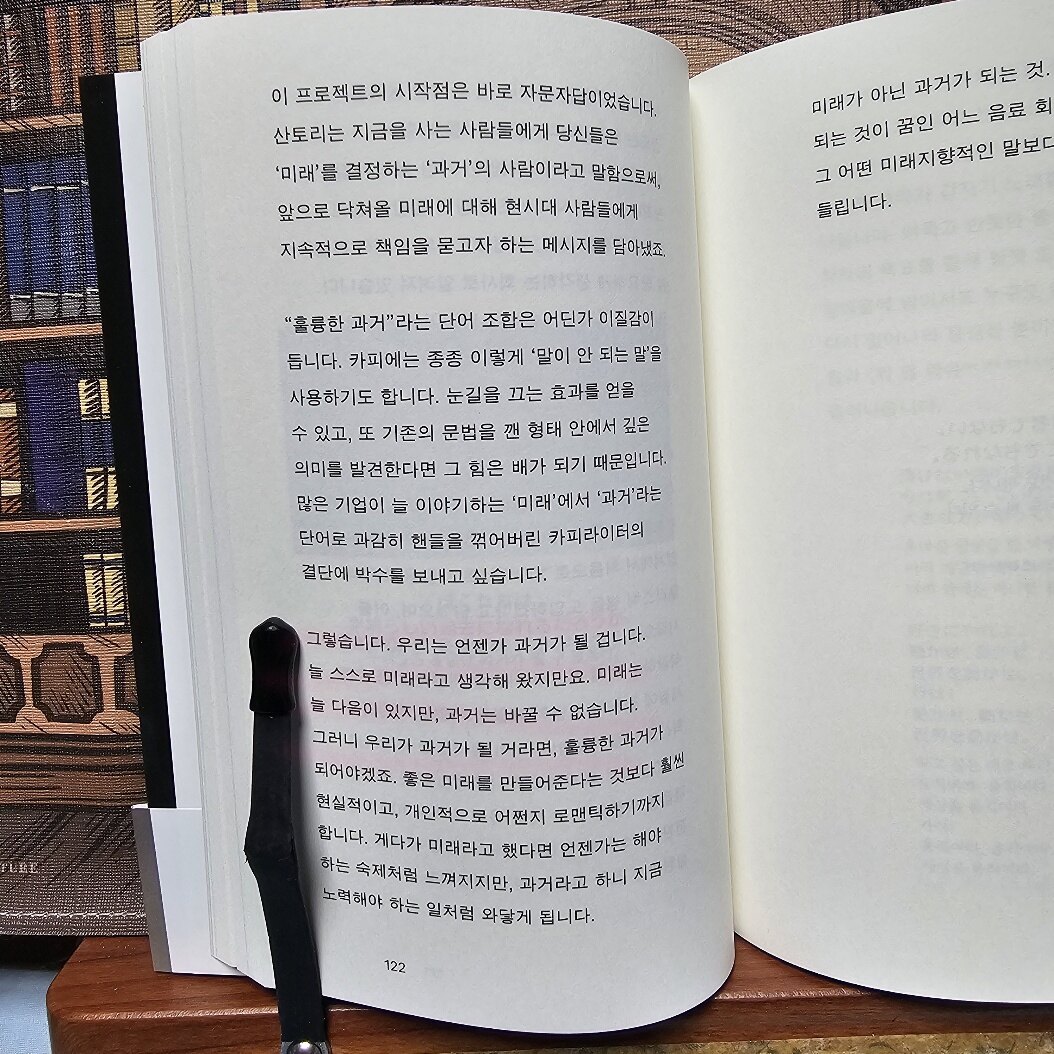 이 프로젝트의 시작점은 바로 자문자답이었습니다.
산토리는 지금을 사는 사람들에게 당신들은
‘미래’를 결정하는 ‘과거’의 사람이라고 말함으로써,
앞으로 닥쳐올 미래에 대해 현시대 사람들에게
지속적으로 책임을 묻고자 하는 메시지를 담아냈죠.
“훌륭한 과거”라는 단어 조합은 어딘가 이질감이
듭니다. 카피에는 종종 이렇게 ‘말이 안 되는 말’을
사용하기도 합니다. 눈길을 끄는 효과를 얻을
수 있고, 또 기존의 문법을 깬 형태 안에서 깊은
의미를 발견한다면 그 힘은 배가 되기 때문입니다.
많은 기업이 늘 이야기하는 ‘미래’에서 ‘과거’라는
단어로 과감히 핸들을 꺾어버린 카피라이터의
결단에 박수를 보내고 싶습니다.
그렇습니다. 우리는 언젠가 과거가 될 겁니다.
늘 스스로 미래라고 생각해 왔지만요. 미래는
늘 다음이 있지만, 과거는 바꿀 수 없습니다.
그러니 우리가 과거가 될 거라면, 훌륭한 과거가
되어야겠죠. 좋은 미래를 만들어준다는 것보다 훨씬
현실적이고, 개인적으로 어쩐지 로맨틱하기까지
합니다. 게다가 미래라고 했다면 언젠가는 해야
하는 숙제처럼 느껴지지만, 과거라고 하니 지금
노력해야 하는 일처럼 와닿게 됩니다.
122
미래가 아닌 과거가 되는 것.
되는 것이 꿈인 어느 음료 회
그 어떤 미래지향적인 말보다
들립니다.